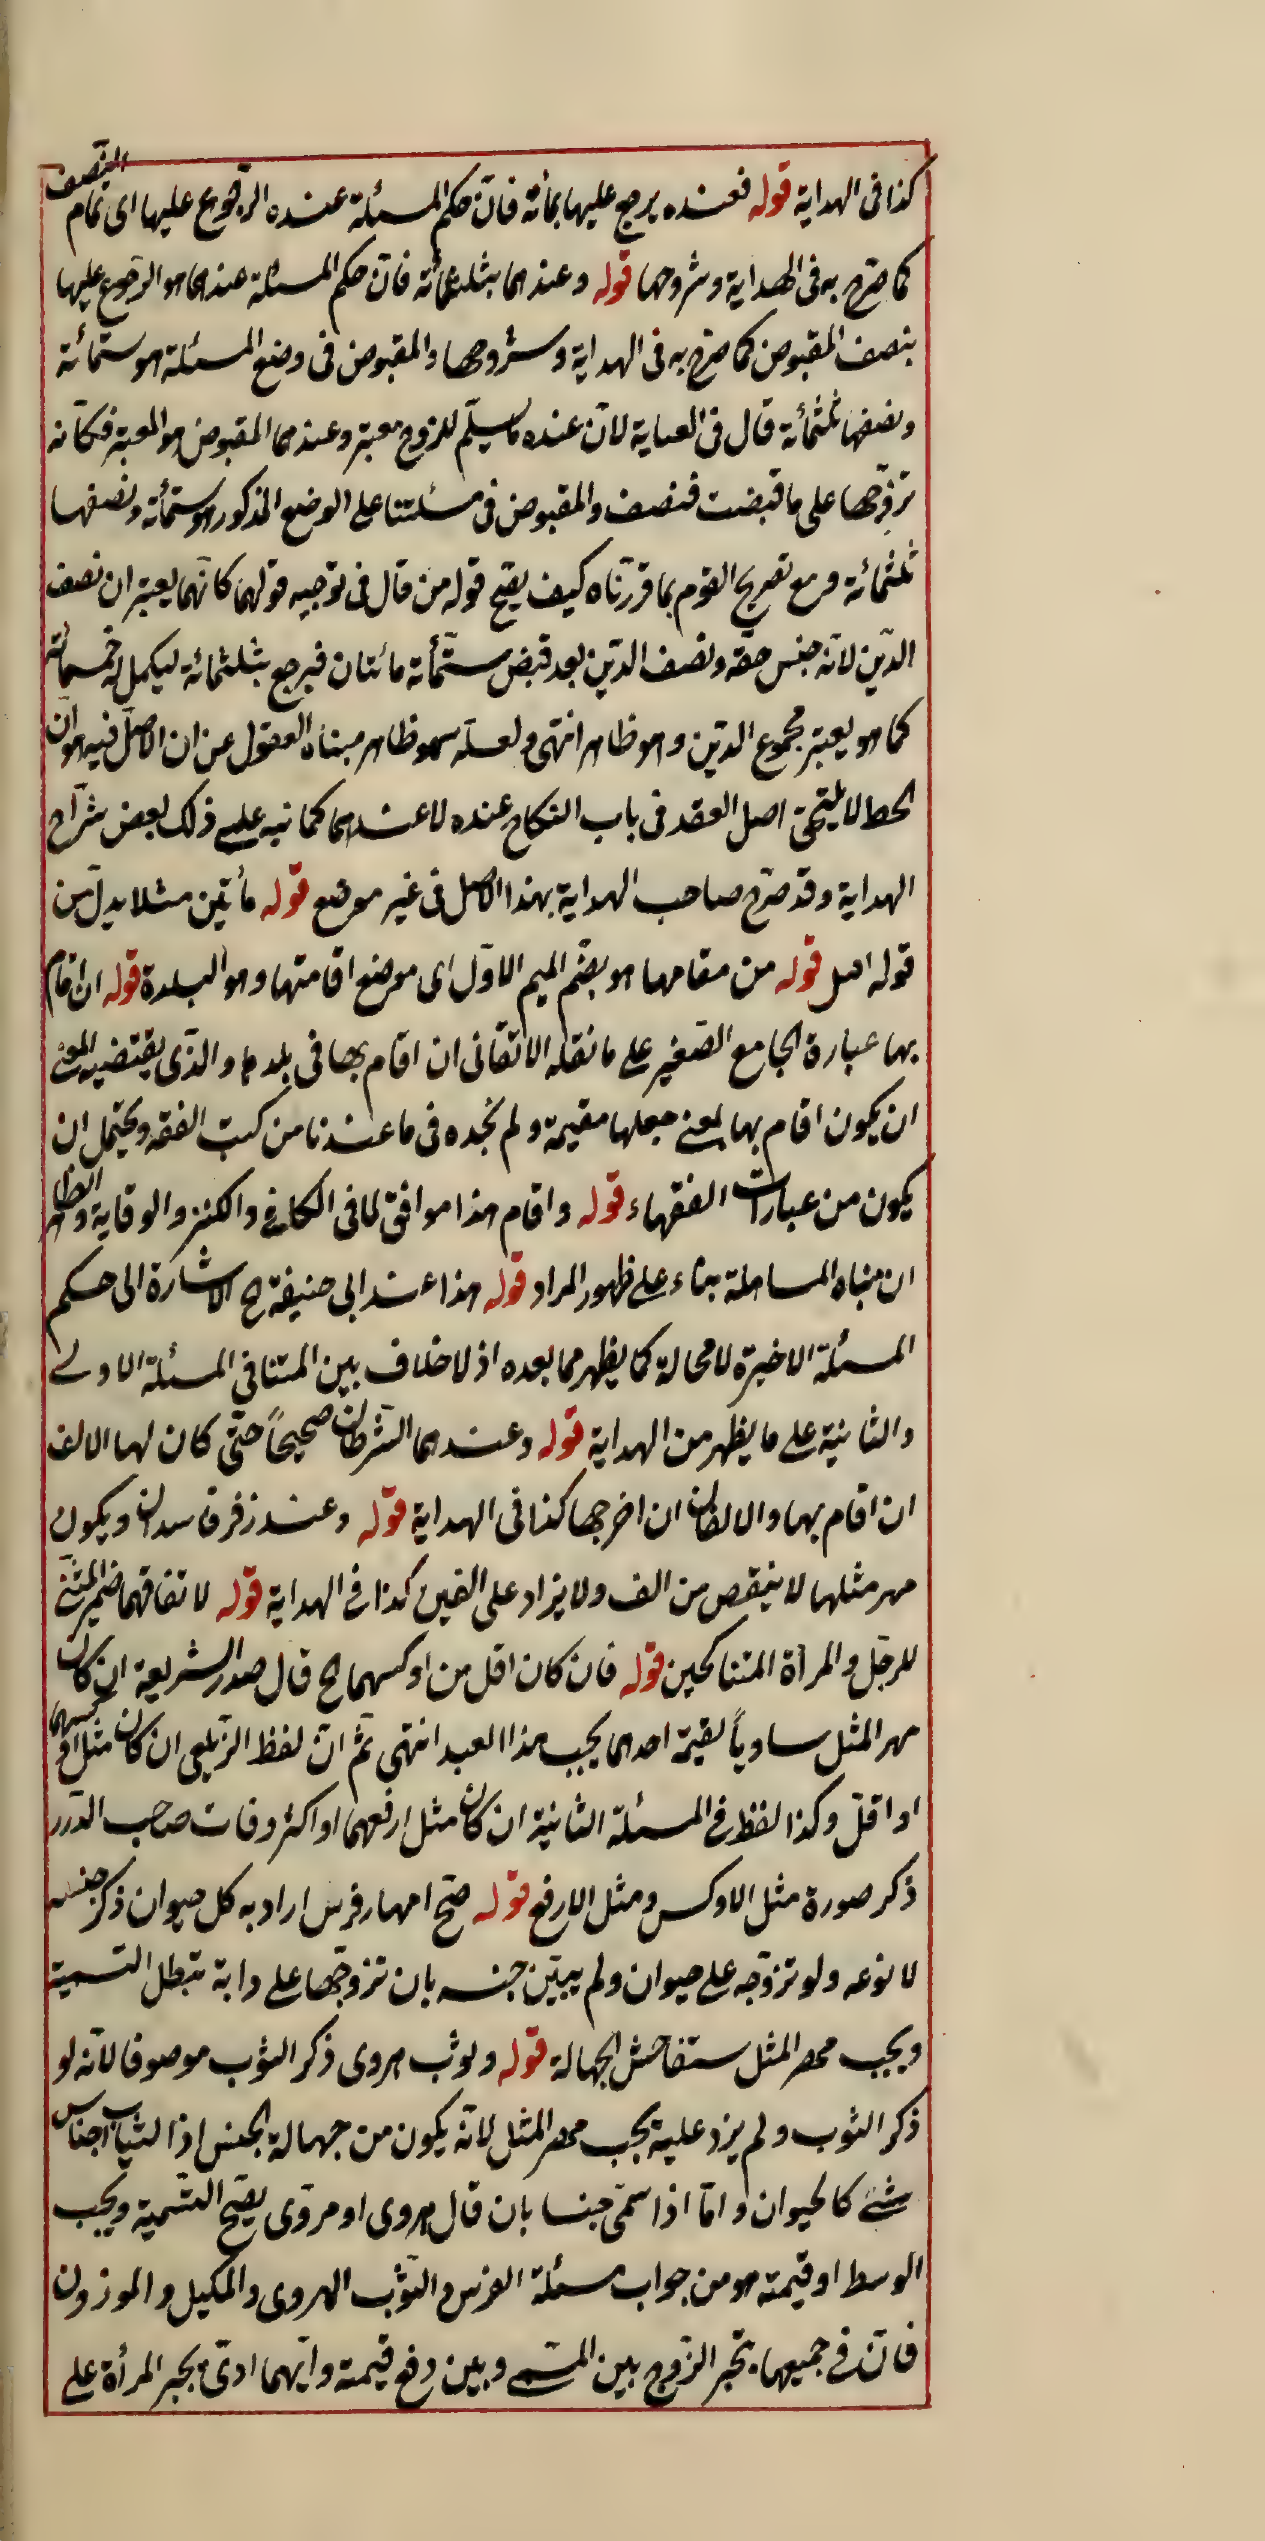 كذا فى الهداية قوله فعنده يرجع عليها بمائة فانّ حكم المسئلة عنده الرّجوع عليها اى تمام النّصف
كما صرّح به فى الهداية وشروحها قوله وعندهما بثلثمائة فانّ حكم المسئلة عندهما هو الرّجوع عليها
بنصف المقبوض كما صرّح به فى الهداية وشروحها والمقبوض فى وضع المسئلة هو ستمائة
ونصفها ثلثمائة قال فى العناية لانّ عنده ما يسلّم للزوج معتبر وعندهما المقبوض هو المعتبر فكانّه
تزوّجها على ما قبضت فنصف والمقبوض فى مسئلتنا على الوضع المذكور هو ستمائة ونصفها
ثلثمائة ومع تصريح القوم بما قررناه كيف يصّح قوله من قال فى توجيه قولهما كانّهما يعتبران نصف
الدّين لانّه جنس حقّه ونصف الدّين بعد قبض ستّمائة مائتان فيرجع بثلثمائة ليكمل له خمسمائة
كما هو يعتبر مجموع الدّين وهو ظاهر انتهى ولعلّه سهو ظاهر مبناه العقول عن ان الاصل فيه هو انّ
الحط لا يلتحق اصل العقد فى باب النكاح عنده لا عندهما كما نبه على ذلك بعض شرّاح
الهداية وقد صرّح صاحب الهداية بهذا الاصل فى غير موضع قوله مأتين مثلا بدل من
قوله اقل قوله من مقامها هو بضّم الميم الاوّل اى موضع اقامتها وهو البلدة قوله ان اقام
بها عبارة الجامع الصّغير على ما نقله الاتقانى ان اقام بها فى بلدها والذّى يقتضيه المعنى
ان يكون اقام بها بمعنى جعلها مقيمة ولم نجده فى ما عندنا من كتب الفقه ويحتمل ان
يكون من عبارات الفقهاء قوله واقام هذا موافق لما فى الكافى والكنز والوقاية والظاهر
ان مبناه المساهلة بناء على ظهور المراد قوله هذا عند ابى حنيفة رح الاشارة الى حكم
المسئلة الاخيرة لا محالة كما يظهر مما بعده اذ لا خلاف بين ائمتنا فى المسئلة الاولى
والثانية على ما يظهر من الهداية قوله وعندهما الشّرطان صحيحاً حتّى كان لها الالف
ان اقام بها والالفان ان اخرجها كذا فى الهداية قوله وعند زفر فاسدان ويكون
مهر مثلها لا ينقص من الف ولا يزاد على الفين كذا فى الهداية قوله لاتفاقهما ضمير المثنّى
للرجل والمرأة المتناكحين قوله فان كان اقل من اوكسهما الخ قال صدر الشريعة ان كان
مهر المثل مساوياً لقيمة احدهما يجب هذا العبد انتهى ثم انّ لفظ الزّيلعى ان كان مثل اوكسهما
او اقلّ وكذا لفظ فى المسئلة الثانية ان كان مثل ارفعهما او اكثر وفات صاحب الدّرر
ذكر صورة مثل الاوكس ومثل الارفع قوله صّح امهار فرس اراد به كل حيوان ذكر جنسه
لا نوعه ولو تزوّجه على حيوان ولم يبيّن جنسه بان تزوجّها على دابة تبطل التسمية
ويجب مهر المثل ستفاحش الجهالة قوله وثوب هروى ذكر الثوب موصوفا لانّه لو
ذكر الثوب ولم يزد عليه يجب مهر المثل لانّه يكون من جهالة الجنس اذ الثياب اجناس
شتّى كالحيوان وامّا اذا سمّى جنسا بان قال هروى او مروّى يصّح التّسمية ويجب
الوسط او قيمته هو من جواب مسئلة الفرس والثّوب الهروى والمكيل والموزون
فانّ فى جميعها يخّير الزّوج بين المسّمى وبين دفع قيمته وايّهما ادّى يجبر المرأة على